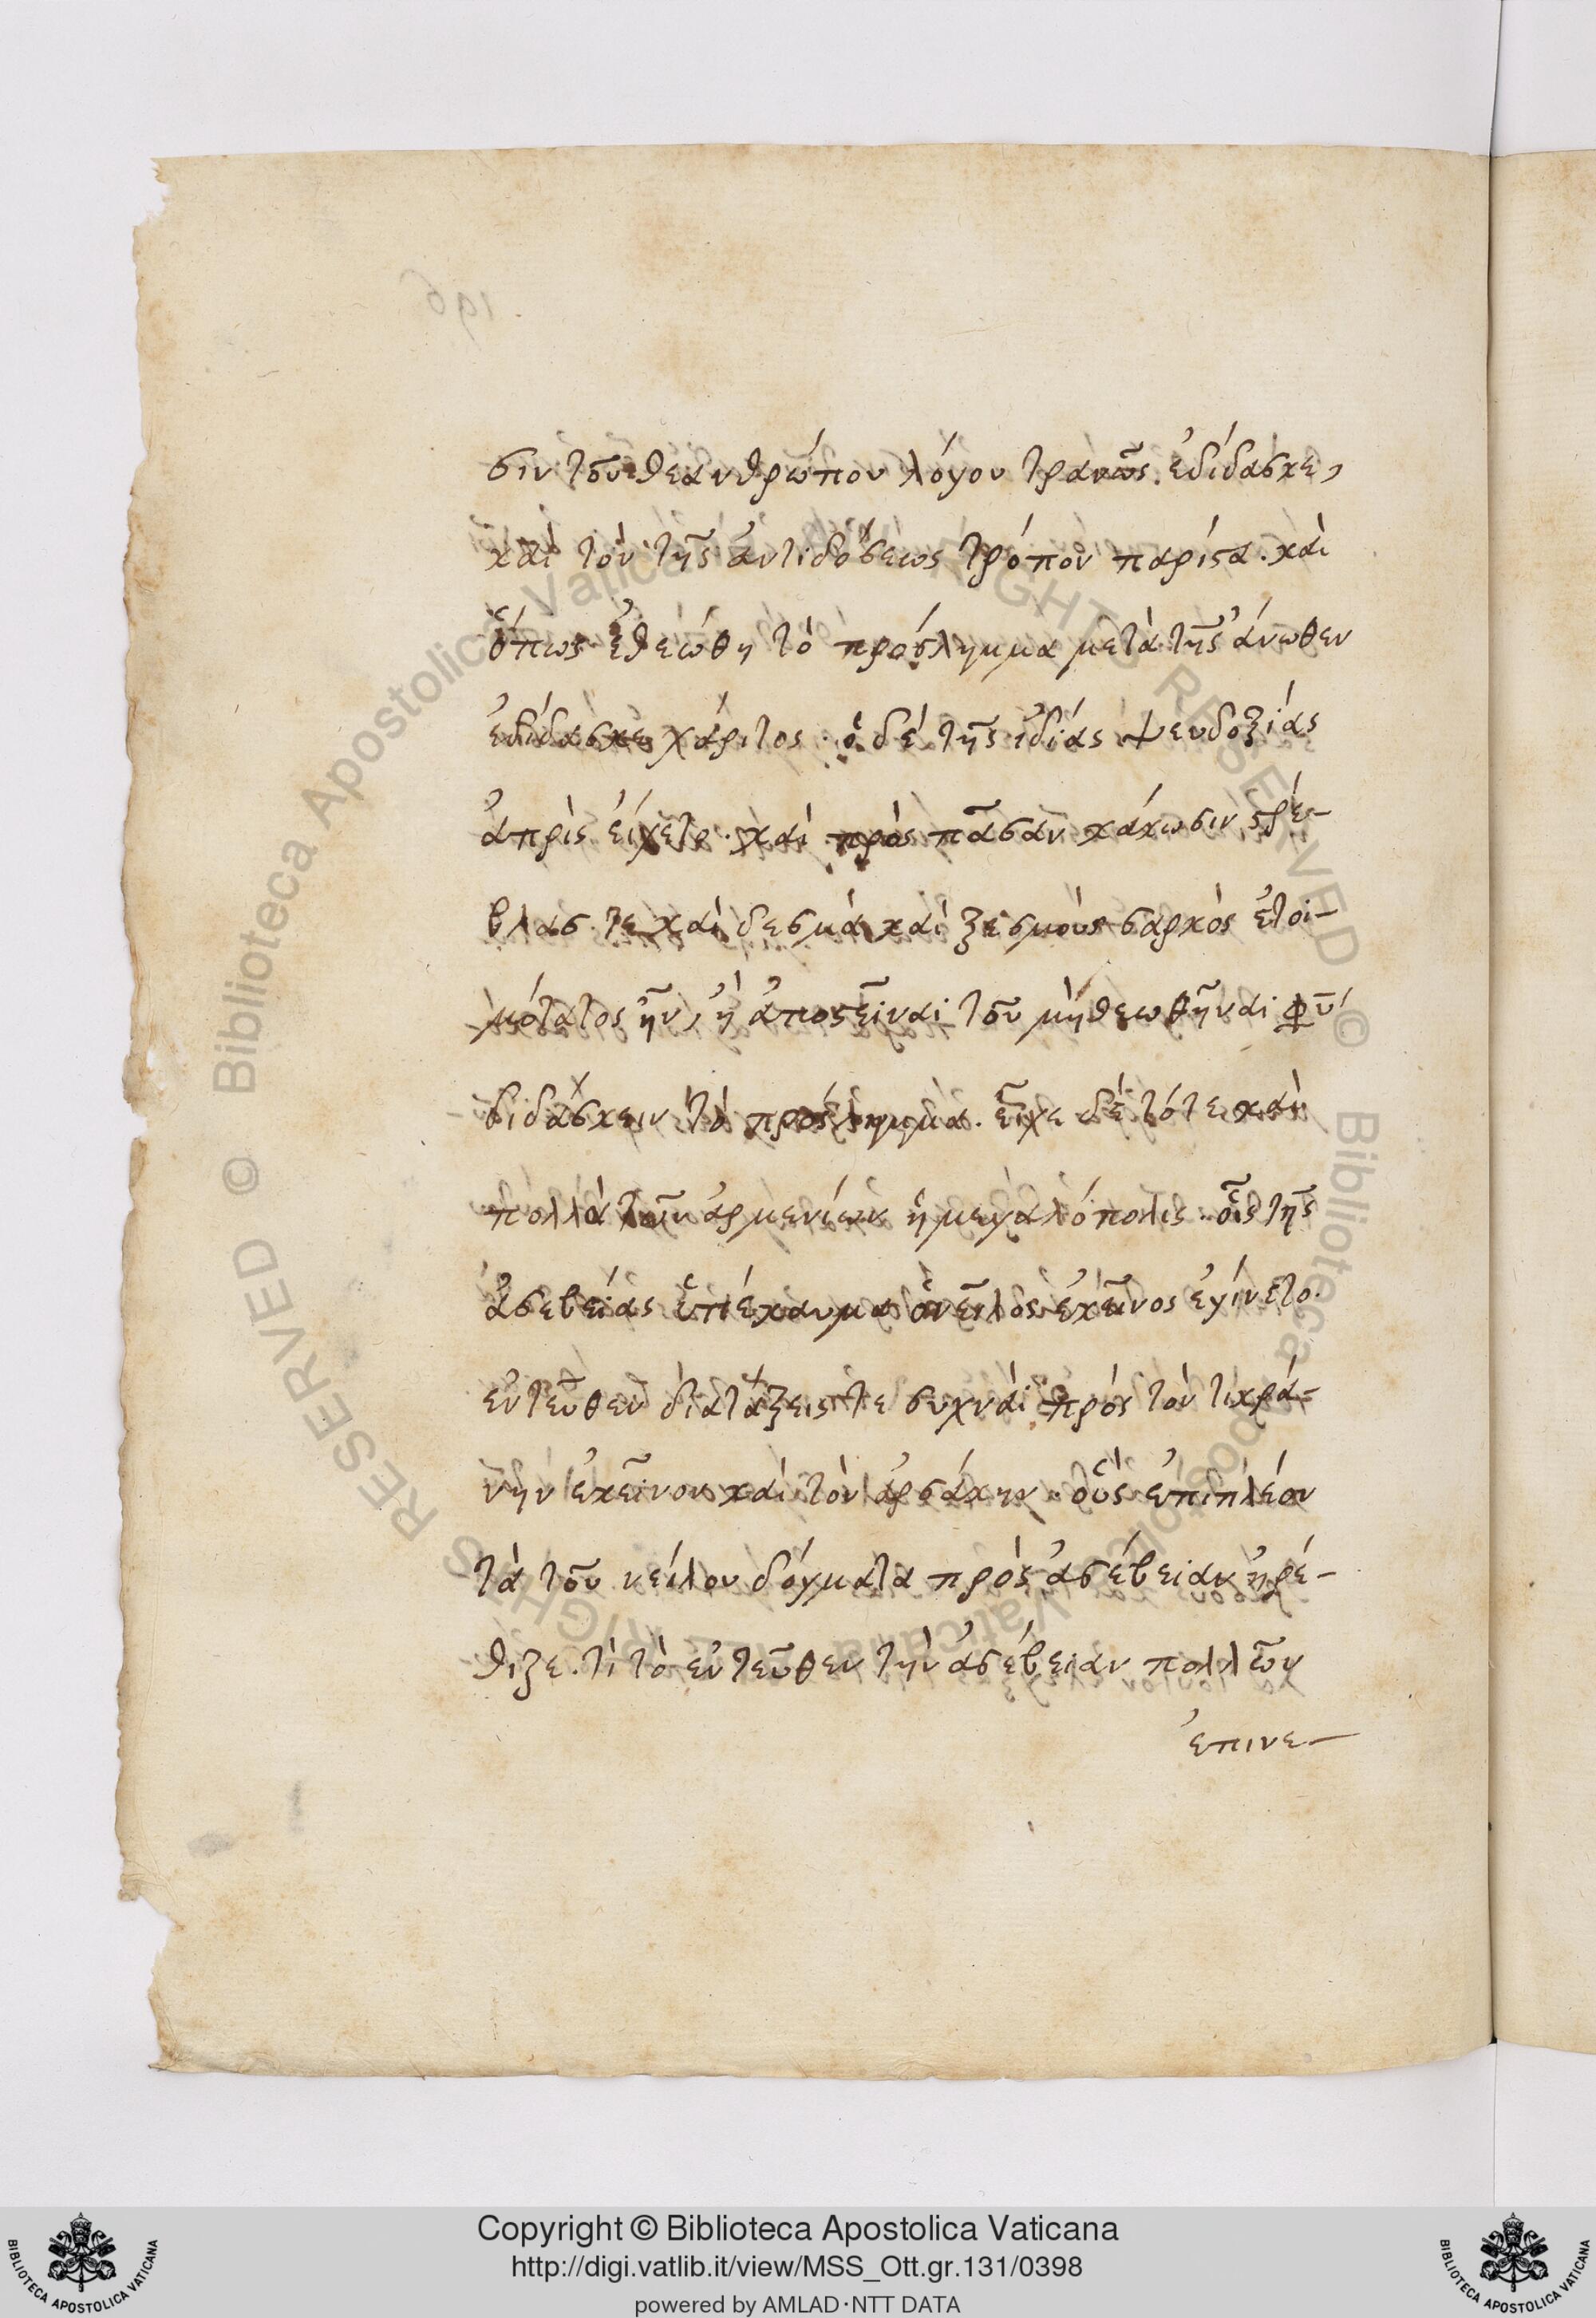 σιν τοῦ θεανθρώπου λόγου τρανῶς. ἐδίδασκε,
καὶ τὸν τῆς ἀντιδόσεως τρόπον παρίστα. καὶ
ὅπως ἐθεώθη τὸ πρόσλημμα μετὰ τῆς ἄνωθεν
ἐδίδασκε χάριτος. ὁ δὲ τῆς ἰδίας ψευδοξίας
ἀπρὶς εἴχετο. καὶ πρὸς πᾶσαν κάκωσιν, στρέ-
βλας τε καὶ δεσμὰ καὶ ξεσμοὺς σαρκὸς ἑτοι-
μότατος ἦν, ἢ ἀποστεῖναι τοῦ μὴ θεωθῆναι
διδάσκειν τὸ πρόσλημμα. εἶχε δὲ τότε καὶ
πολλὰ τῶν ἀρμενίων ἡ μεγαλόπολις. οἷς τῆς
ἀσεβείας ὑπέκαυμα ὁ νεῖλος ἐκεῖνος ἐγίνετο.
ἐντεῦθεν διατάξεις τε συχναὶ πρὸς τὸν τικρά-
νην ἐκεῖνον καὶ τὸν ἀρσάκην. οὓς ἐπιπλέον
τὰ τοῦ νείλου δόγματα πρὸς ἀσέβειαν ἠρέ-
θιζε. τὶ τὸ ἐντεῦθεν τὴν ἀσέβειαν πολλῶν
ἐπινε-
196
Copyright © Biblioteca Apostolica Vaticana
http://digi.vatlib.it/view/MSS_Ott.gr.131/0398
powered by AMLAD·NTT DATA
BIBLIOTECA APOSTOLICA VATICANA
BIBLIOTECA APOSTOLICA VATICANA
© Biblioteca Apostolica Vaticana ALL RIGHTS RESERVED
© Biblioteca Apostolica Vaticana ALL RIGHTS RESERVED